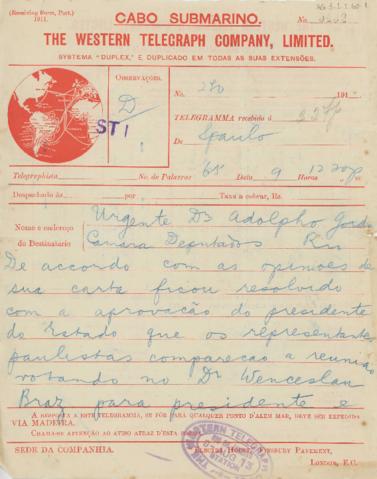 (Receiving Form, Port.)
1911.
CABO SUBMARINO.
No
THE WESTERN TELEGRAPH COMPANY, LIMITED.
SYSTEMA "DUPLEX," E DUPLICADO EM TODAS AS SUAS EXTENSÕES.
OBSERVAÇÕES.
D
ST
No. 240 191
TELEGRAMMA recebido á
De Spaulo
Telegraphista No. de Palavras 68 Data 9 Horas 12
Despachado ás por Taxa a cobrar, Rs.
Nome e endereço
do Destinatario
Urgente Dr Adolpho Gordo
Camara Deputados Rio
De accordo com as opinioes de
sua carta ficou resolvido
com a aprovacão do presidente
do Estado que os representantes
paulistas comparecao a reunião
votando no Dr Wenceslau
Braz para presidente e
A RESPOSTA A ESTE TELEGRAMMA, SE FÔR PARA QUALQUER PONTO D'ALEM MAR, DEVE SER EXPEDIDA
VIA MADEIRA.
CHAMA-SE ATTENÇÃO AO AVISO ATRAZ D'ESTA
SÉDE DA COMPANHIA. ELECTRA HOUSE, FINSBURY PAVEMENT,
LONDON, E.C.
THE WESTERN TELEGRAPH
AUG 13
STATION